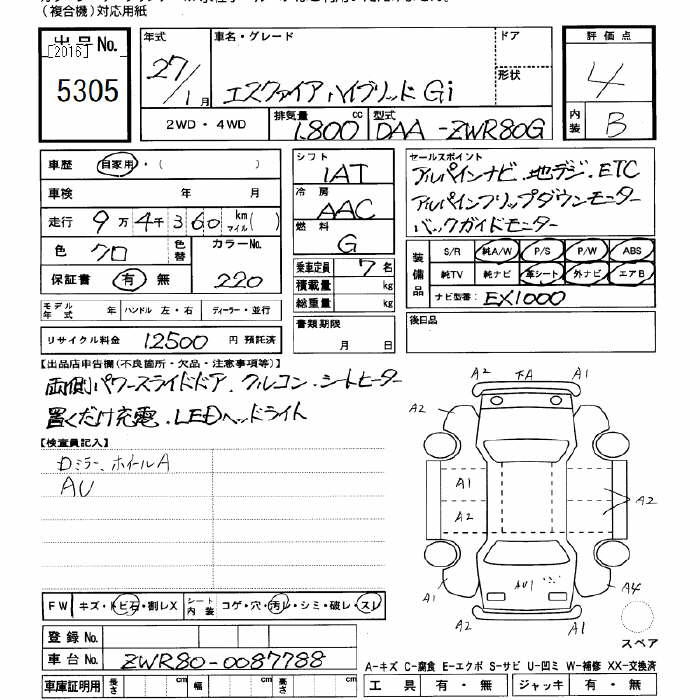 （複合機）対応用紙
出品No.
[2016]
5305
年式
27/1月
車名・グレード
エスクァイア ハイブリッド Gi
ドア
形状
2WD・4WD
排気量
1,800cc
型式
DAA-ZWR80G
評価点
4
内装
B
車歴 自家用・( )
車検 年 月
走行 9万4千360km マイル( )
色 クロ 色替
カラーNo.
220
保証書 有 無
モデル年式 年 ハンドル 左・右 ディーラー・並行
リサイクル料金 12500 円 預託済
シフト
IAT
冷房
AAC
燃料
G
乗車定員 7名
積載量 kg
総重量 kg
書類期限
月 日
セールスポイント
アルパインナビ、地デジ、ETC
アルパインフリップダウンモニター
バックガイドモニター
装備品
S/R 純A/W P/S P/W ABS
純TV 純ナビ 革シート 外ナビ エアB
ナビ型番: EX1000
後日品
【出品店申告欄(不良箇所・欠品・注意事項等)】
両側パワースライドドア、クルコン、シートヒーター
置くだけ充電、LEDヘッドライト
【検査員記入】
Dミラー、ホイールA
AU
A2 A1
A2 A2
A1
A2
A2
AU1
A1 A4
A2 A1
スペア
FW キズ・トビ石・割レX シート内装 コゲ・穴・汚レ・シミ・破レ・スレ
登録No.
車台No. ZWR80-0087788
車庫証明用 長さ cm 幅 cm 高さ cm
A-キズ C-腐食 E-エクボ S-サビ U-凹ミ W-補修 XX-交換済
工具 有・無 ジャッキ 有・無